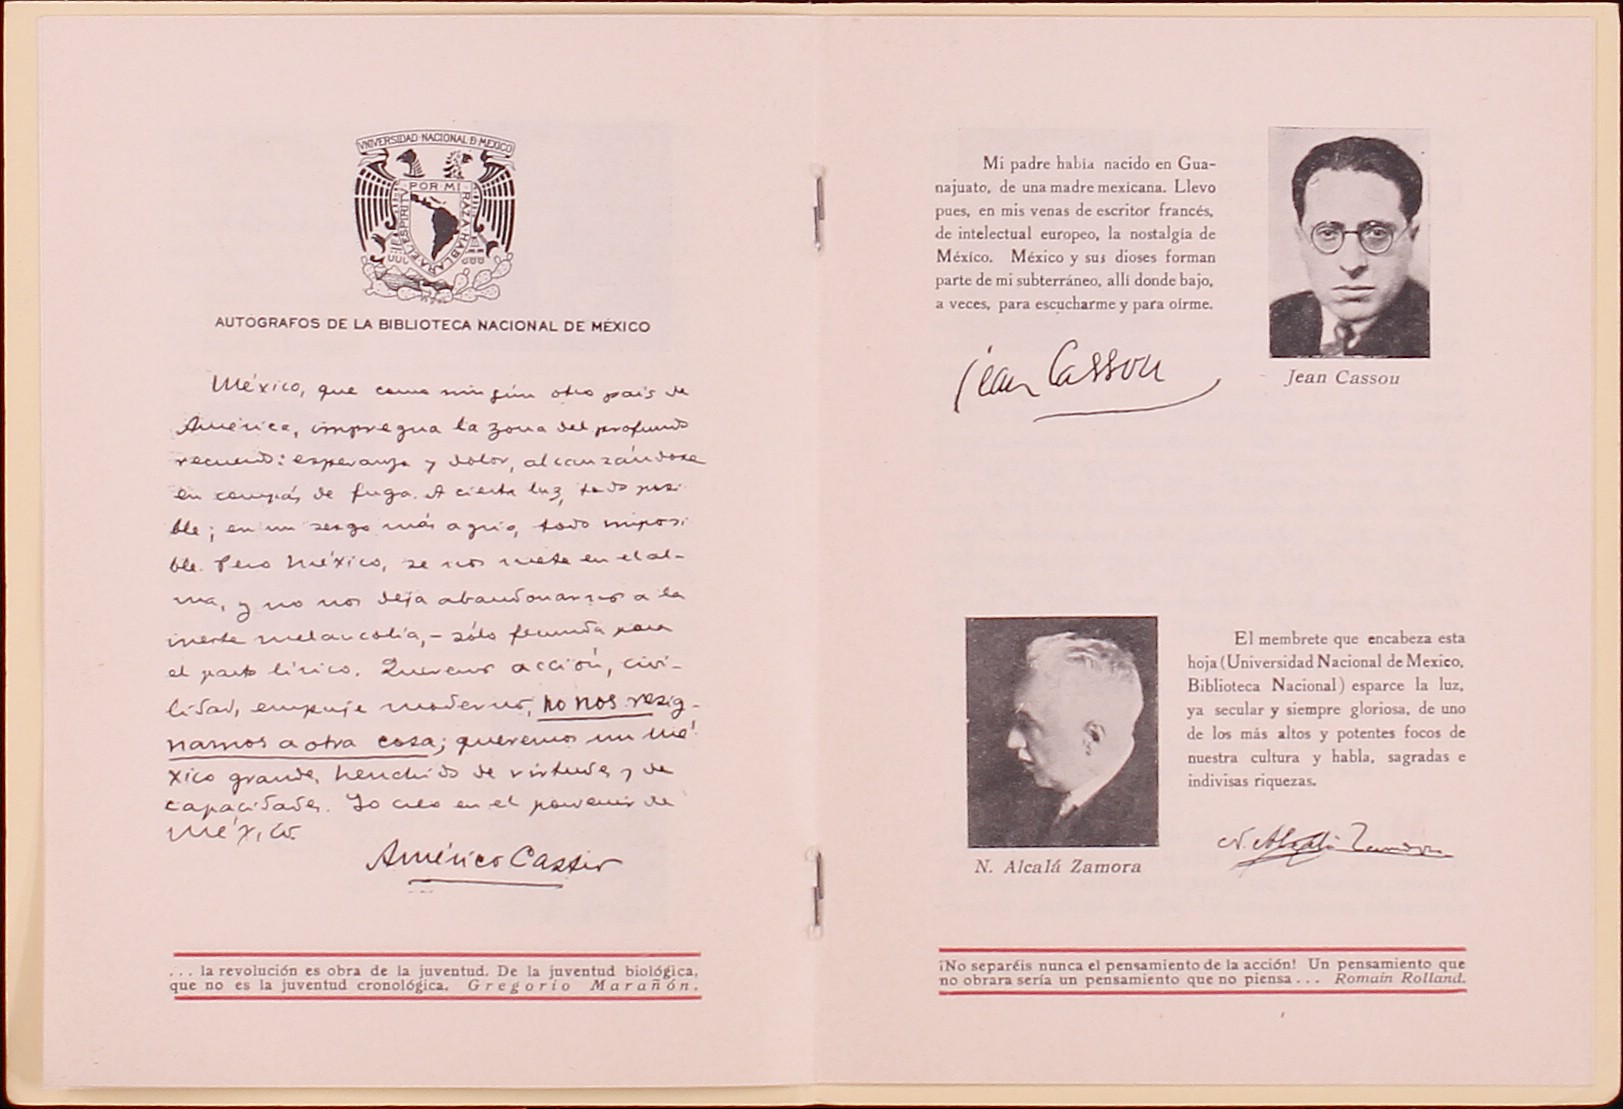 UNIVERSIDAD NACIONAL D MEXICO
POR MI RAZA HABLARA EL ESPIRITU
AUTOGRAFOS DE LA BIBLIOTECA NACIONAL DE MÉXICO
México, que como ningún otro país de
América, impregna la zona del profundo
recuerdo: esperanza y dolor, alcanzándose
en compás de fuga. A cierta luz, todo posi-
ble; en un sesgo más agrio, todo imposi
ble. Pero México, se nos mete en el al-
ma, y no nos deja abandonarnos a la
inerte melancolía, - sólo fecunda para
el parto lírico. Queremos acción, civi-
lidad, empuje moderno, no nos resig-
namos a otra cosa; queremos un Mé-
xico grande, henchido de virtudes y de
capacidades. Yo creo en el porvenir de
México.
Américo Castro
... la revolución es obra de la juventud. De la juventud biológica,
que no es la juventud cronológica. Gregorio Marañón.
Mi padre había nacido en Gua-
najuato, de una madre mexicana. Llevo
pues, en mis venas de escritor francés,
de intelectual europeo, la nostalgia de
México. México y sus dioses forman
parte de mi subterráneo, allí donde bajo,
a veces, para escucharme y para oírme.
Jean Cassou
Jean Cassou
El membrete que encabeza esta
hoja (Universidad Nacional de Mexico,
Biblioteca Nacional) esparce la luz,
ya secular y siempre gloriosa, de uno
de los más altos y potentes focos de
nuestra cultura y habla, sagradas e
indivisas riquezas.
N. Alcalá Zamora
N. Alcalá Zamora
¡No separéis nunca el pensamiento de la acción! Un pensamiento que
no obrara sería un pensamiento que no piensa... Romain Rolland.